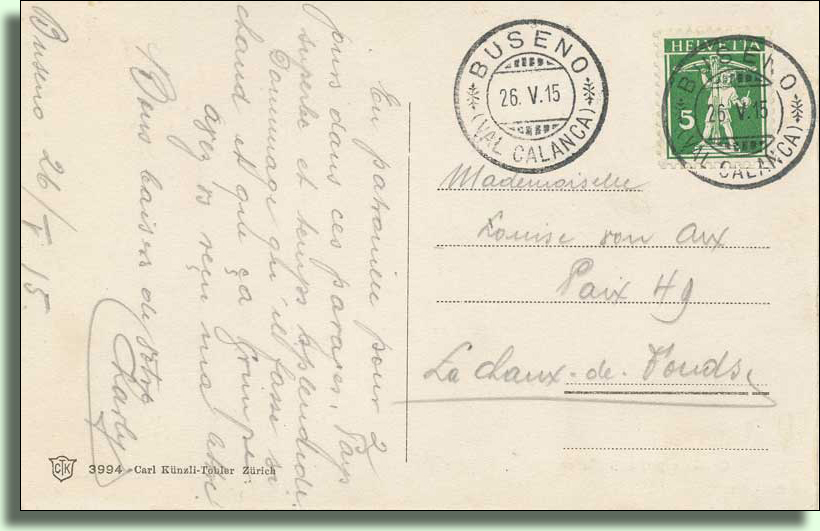 Buseno 26/V 15.
En patrouille pour 2
jours dans ces parages. Pays
superbe et temps splendide.
Dommage qu'il fasse si
chaud et que ça grimpe
avez vs reçu ma lettre?
Bons baisers de votre
Charly
BUSENO
26. V. 15
(VAL CALANCA)
HELVETIA
5
BUSENO
26. V. 15
(VAL CALANCA)
Mademoiselle
Louise von Arx
Paix 49
La Chaux-de-Fonds
CTK
3994 Carl Künzli-Tobler Zürich